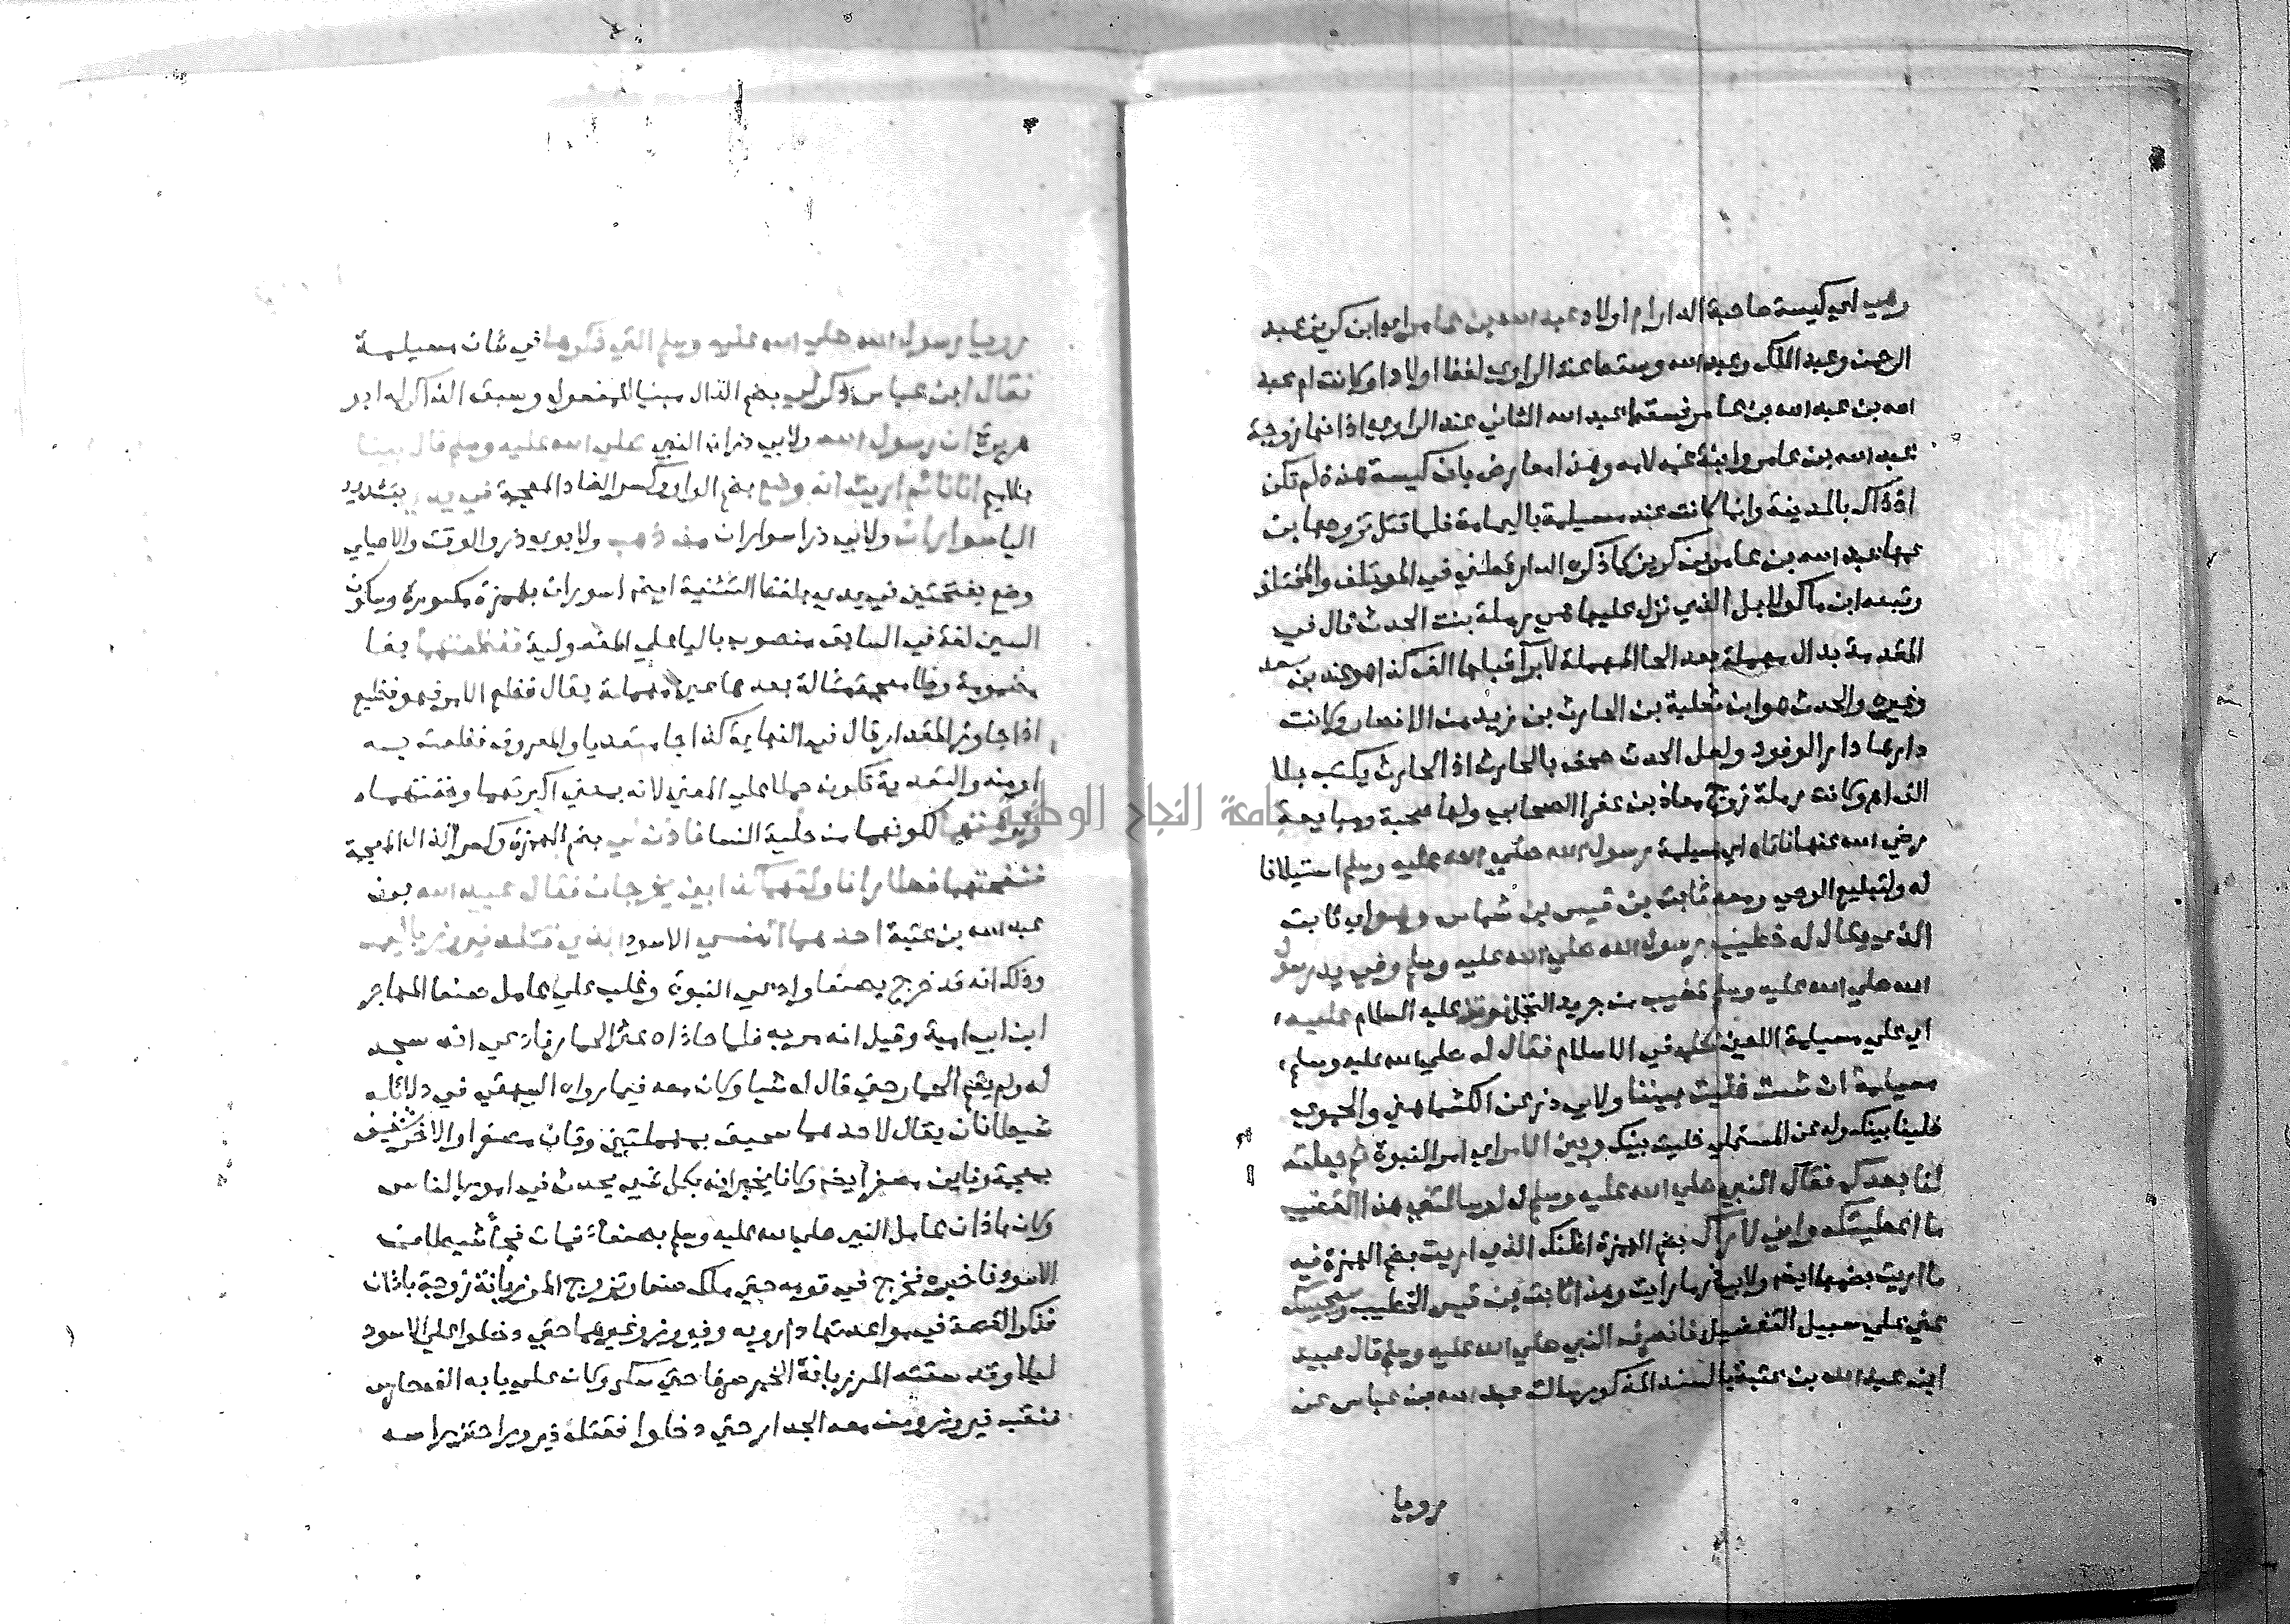 وهي اي كيسة صاحبة الدار ام اولاد عبد الله بن عامر اي ابن كريز عبد
الرحمن وعبد الملك وعبد الله وسقط عند الراوي لفظ اولاد او كانت ام عبد
الله بن عبد الله بن عامر فسقط عبد الله الثاني عند الراوي اذ انها زوجة
عبد الله بن عامر وابنة عمه لامه وهذا معارض بان كيسة هذه لم تكن
اذ ذاك بالمدينة وانما كانت عند مسيلمة باليمامة فلما قتل تزوجها بن
عمها عبد الله بن عامر بن كريز كما ذكره الدارقطني في الموتلف والمختلف
وتبعه ابن ماكولا بل الذي نزل عليها هي رملة بنت الحدث قال في
المقدمة بدال مهملة بعد الحا المهملة لا براء قبلها الف كذا هو عند بن سعد
وغيره والحدث هو ابن ثعلبة بن الحارث بن زيد من الانصار وكانت
دارها دار الوفود ولعل الحدث صحف بالحارث اذ الحارث يكتب بلا
الف اهـ وكانت رملة زوج معاذ بن عفرا الصحابي ولها صحبة ومبايعة
رضي الله عنها فاتاه اي مسيلمة رسول الله صلي الله عليه وسلم استيلافا
له ولتبليغ الوحي ومعه ثابت بن قيس بن شماس وهو اي ثابت
الذي يقال له خطيب رسول الله صلي الله عليه وسلم وفي يد رسول
الله صلي الله عليه وسلم قضيب من جريد النخل فوقف عليه السلام عليه
اي علي مسيلمة اللعين فكلمه في الاسلام فقال له صلي الله عليه وسلم
مسيلمة ان شيت خليت بيننا ولابي ذر عن الكشماهني والحموي
خلينا بينك وله عن المستملي خليت بينك وبين الامر اي امر النبوة ثم جعلته
لنا بعدك فقال النبي صلي الله عليه وسلم له لو سالتني هذا القضيب
ما اعطيتكه واني لاراك بضم الهمزة اظنك الذي اريت بضم الهمزة فيه
ما اريت بضمها ايضا ولابي ذر ما رايت وهذا ثابت بن قيس الخطيب وسيجيبك
عني علي سبيل التفضيل فانصرف النبي صلي الله عليه وسلم قال عبيد
ابن عبد الله بن عتبة بالسند المذكور سالت عبد الله بن عباس عن
رويا
رويا رسول الله صلي الله عليه وسلم التي ذكرها في شان مسيلمة
فقال ابن عباس ذكر لي بضم الذال مبنيا للمفعول وسبق الذاكر له ابو
هريرة ان رسول الله ولابي ذر ان النبي صلي الله عليه وسلم قال بينا
بلا ميم انا نائم اريت انه وضع بضم الواو وكسر الضاد المعجمة في يدي بتشديد
اليا سواران ولابي ذر اسواران من ذهب ولابوي ذر والوقت والاصيلي
وضع بفتحتين في يدي بلفظ التثنية ايضا اسوران بهمزة مكسورة وسكون
السين لغة في السابق منصوب باليا علي المفعولية ففظعتهما بفا
مضمومة وظا معجمة مشالة بعدها عين مهملة يقال فظع الامر فهو فظيع
اذا جاوز المقدار قال في النهاية كذا جا متعديا والمعروف فظعت به
او منه والتعدية تكون حملا علي المعني لانه بمعني اكبرتهما وخفتهما
وكرهتهما لكونهما من حلية النسا فاذن لي بضم الهمزة وكسر الذال المعجمة
فنفختهما فطارا فاولتهما كذابين يخرجان فقال عبيد الله بن
عبد الله بن عتبة احدهما العنسي الاسود الذي قتله فيروز باليمن
وذلك انه قد خرج بصنعا وادعي النبوة وغلب علي عامل صنعا المهاجر
ابن ابي امية وقيل انه مر به فلما حاذاه عثر الحمار فادعي انه سجد
له ولم يقم الحمار حتي قال له شيا وكان معه فيما رواه البيهقي في دلائله
شيطانان يقال لاحدهما سحيق بمهملتين وقاف مصغرا والاخر شقيق
بمعجمة وقافين مصغرا ايضا وكانا يخبرانه بكل شي يحدث في امور الناس
وكان باذان عامل النبي صلي الله عليه وسلم بصنعا فمات فجا شيطان
الاسود فاخبره فخرج في قومه حتي ملك صنعا وتزوج المرزبانة زوجة باذان
فذكر القصة في مواعدتها داذويه وفيروز وغيرهما حتي دخلوا علي الاسود
ليلا وقد سقته المرزبانة الخمر صرفا حتي سكر وكان علي بابه الف حارس
فنقب فيروز ومن معه الجدار حتي دخلوا فقتله فيروز واحتز راسه
جامعة النجاح الوطنية